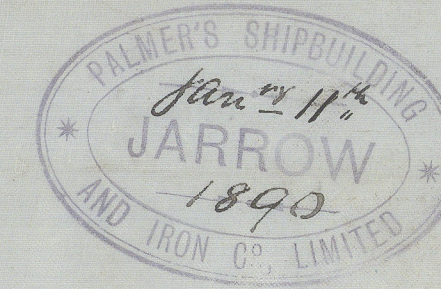 PALMER'S SHIPBUILDING
Janry 11th
JARROW
1890
AND IRON Co, LIMITED